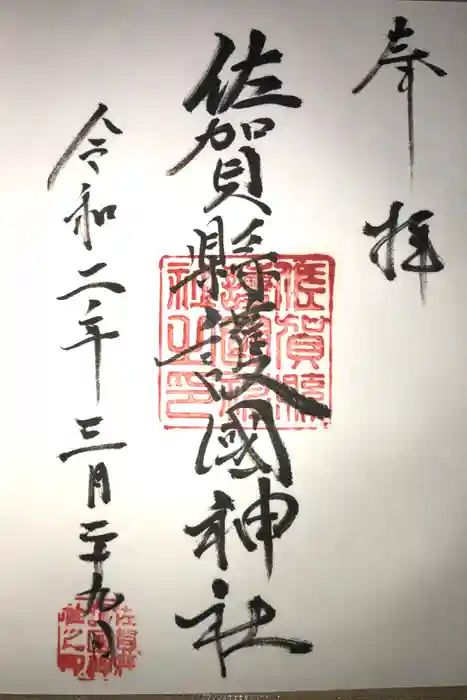 奉拝
佐賀縣護國神社
佐賀縣護國神社之印
令和二年三月二十九日